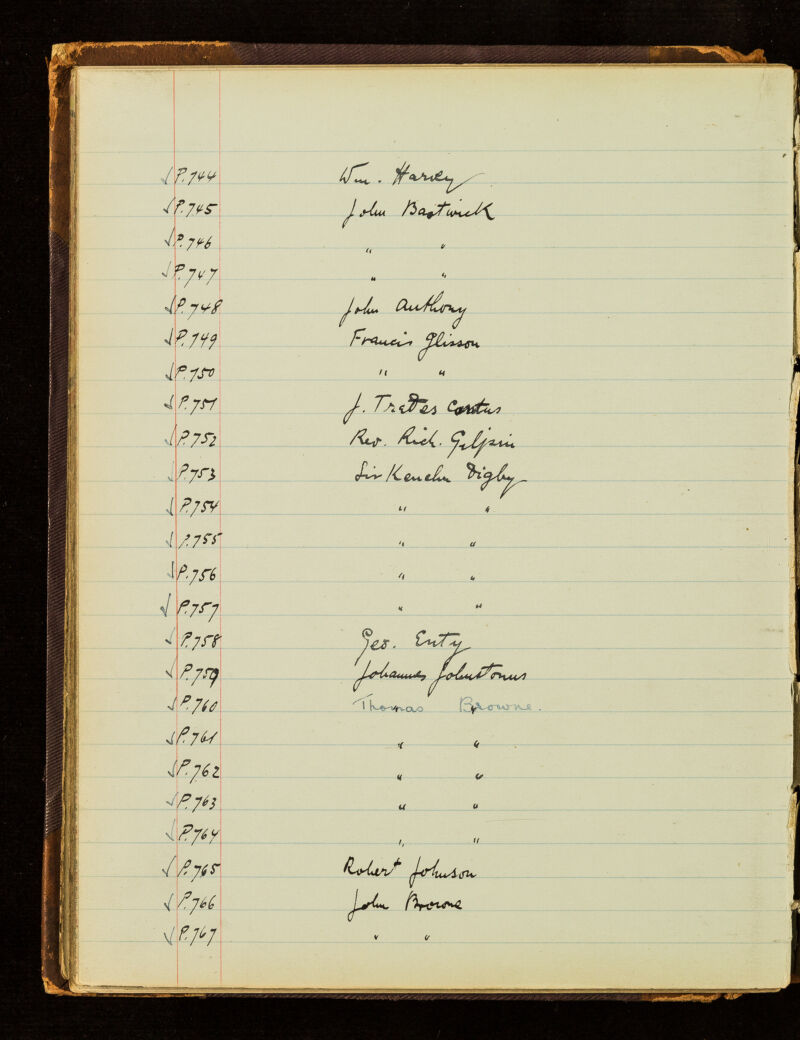 ✓ P.744 Wm. Harvey
✓ P.745 John Bastwick
✓ P.746 " "
✓ P.747 " "
✓ P.748 John Anthony
✓ P.749 Francis Glisson
✓ P.750 " "
✓ P.751 J.
✓ P.752 Rev. Rich. Gilpin
✓ P.753 Sir Kenelm Digby
✓ P.754 " "
✓ P.755 " "
✓ P.756 " "
✓ P.757 " "
✓ P.758 Geo. Enty
✓ P.759 Johannes Johnstonus
✓ P.760 Thomas " Browne. "
✓ P.761 " "
✓ P.762 " "
✓ P.763 " "
✓ P.764 " "
✓ P.765 Robert Johnson
✓ P.766 John Browne
✓ P.767 " "